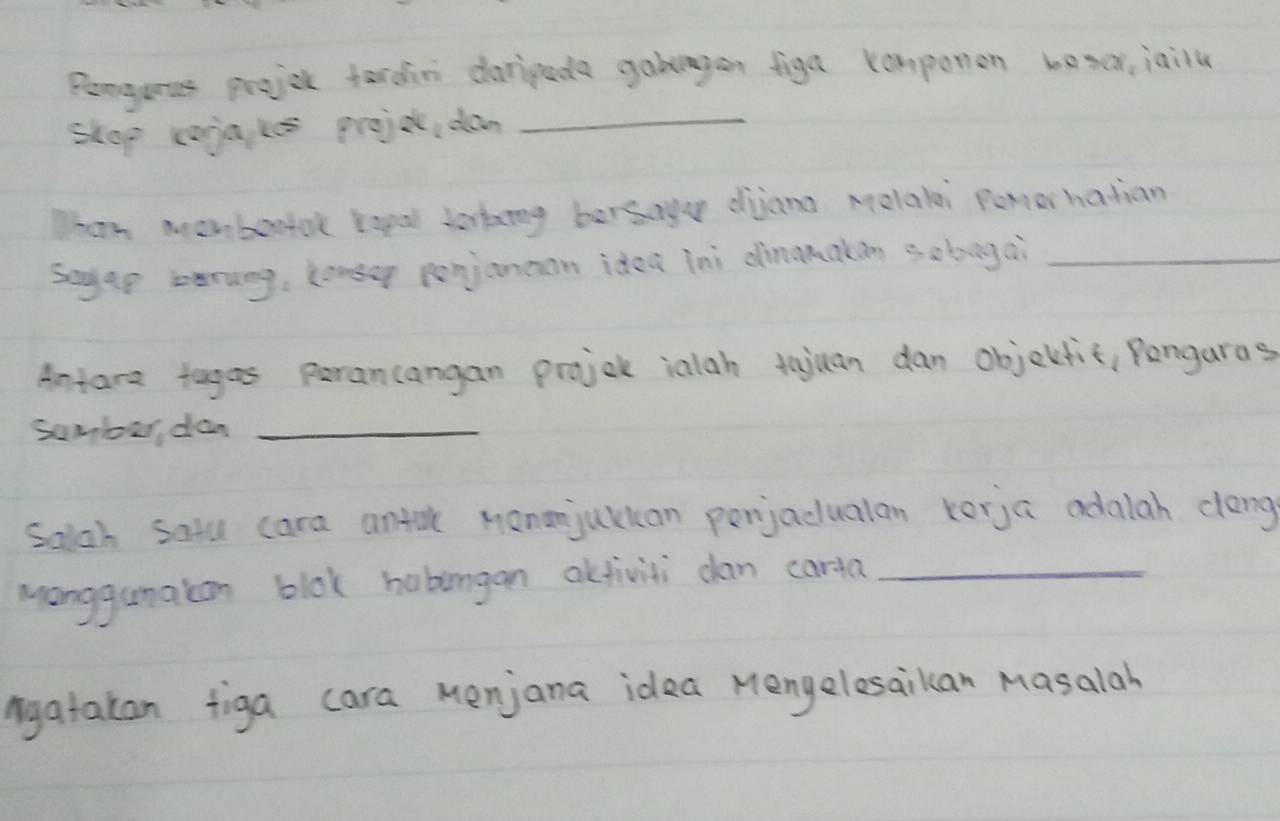 Pengurus projek terdiri daripada gabungan tiga komponen besar, iaitu
skop kerja, kos projek, dan
membentuk kapal terbang bersayap dijana melalui pemerhatian
sayap burung, konsep penjanaan idea ini dinamakan sebagai
Antara tugas perancangan projek ialah tujuan dan objektif, Pengurus
sumber, dan
Salah satu cara untuk menunjukkan penjadualan kerja adalah deng
menggunakan blok hubungan aktiviti dan carta
ngatakan tiga cara menjana idea mengelesaikan masalah